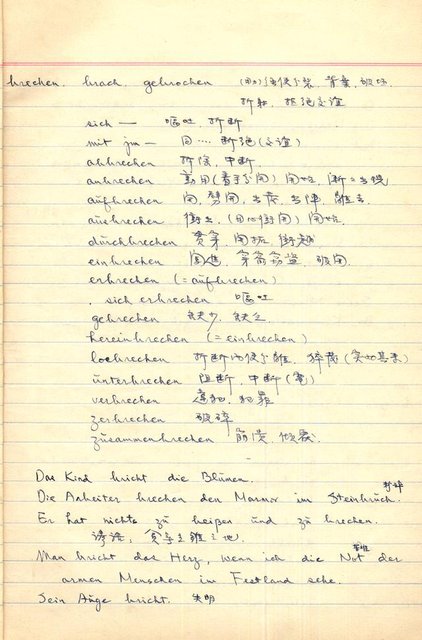 brechen, brach, gebrochen (用力)使分裂, 背棄, 破壞,
折射, 拒絕交誼
sich — 嘔吐, 折斷
mit jm — 同....斷絶(交誼)
abbrechen 拆除, 中斷,
anbrechen 開始,
aufbrechen 開, 出發,
ausbrechen 開始
durchbrechen 貫穿,
einbrechen 闖進, 破開
erbrechen (= aufbrechen)
. sich erbrechen 嘔吐
gebrechen 缺少, 缺乏
hereinbrechen (= einbrechen)
losbrechen 折斷而使分離, 猝發
unterbrechen 阻斷, 中斷(電)
verbrechen 違犯, 犯罪
zerbrechen 破碎
zusammenbrechen 崩潰, 傾覆.
Das Kind bricht die Blumen.
Die Arbeiter brechen den Marmor im Steinbruch.
Er hat nichts zu beißen und zu brechen.
諺語: 貧無立錐之地.
Man bricht das Herz, wenn ich die Not der
armen Menschen im Festland sehe.
Sein Auge bricht. 失明